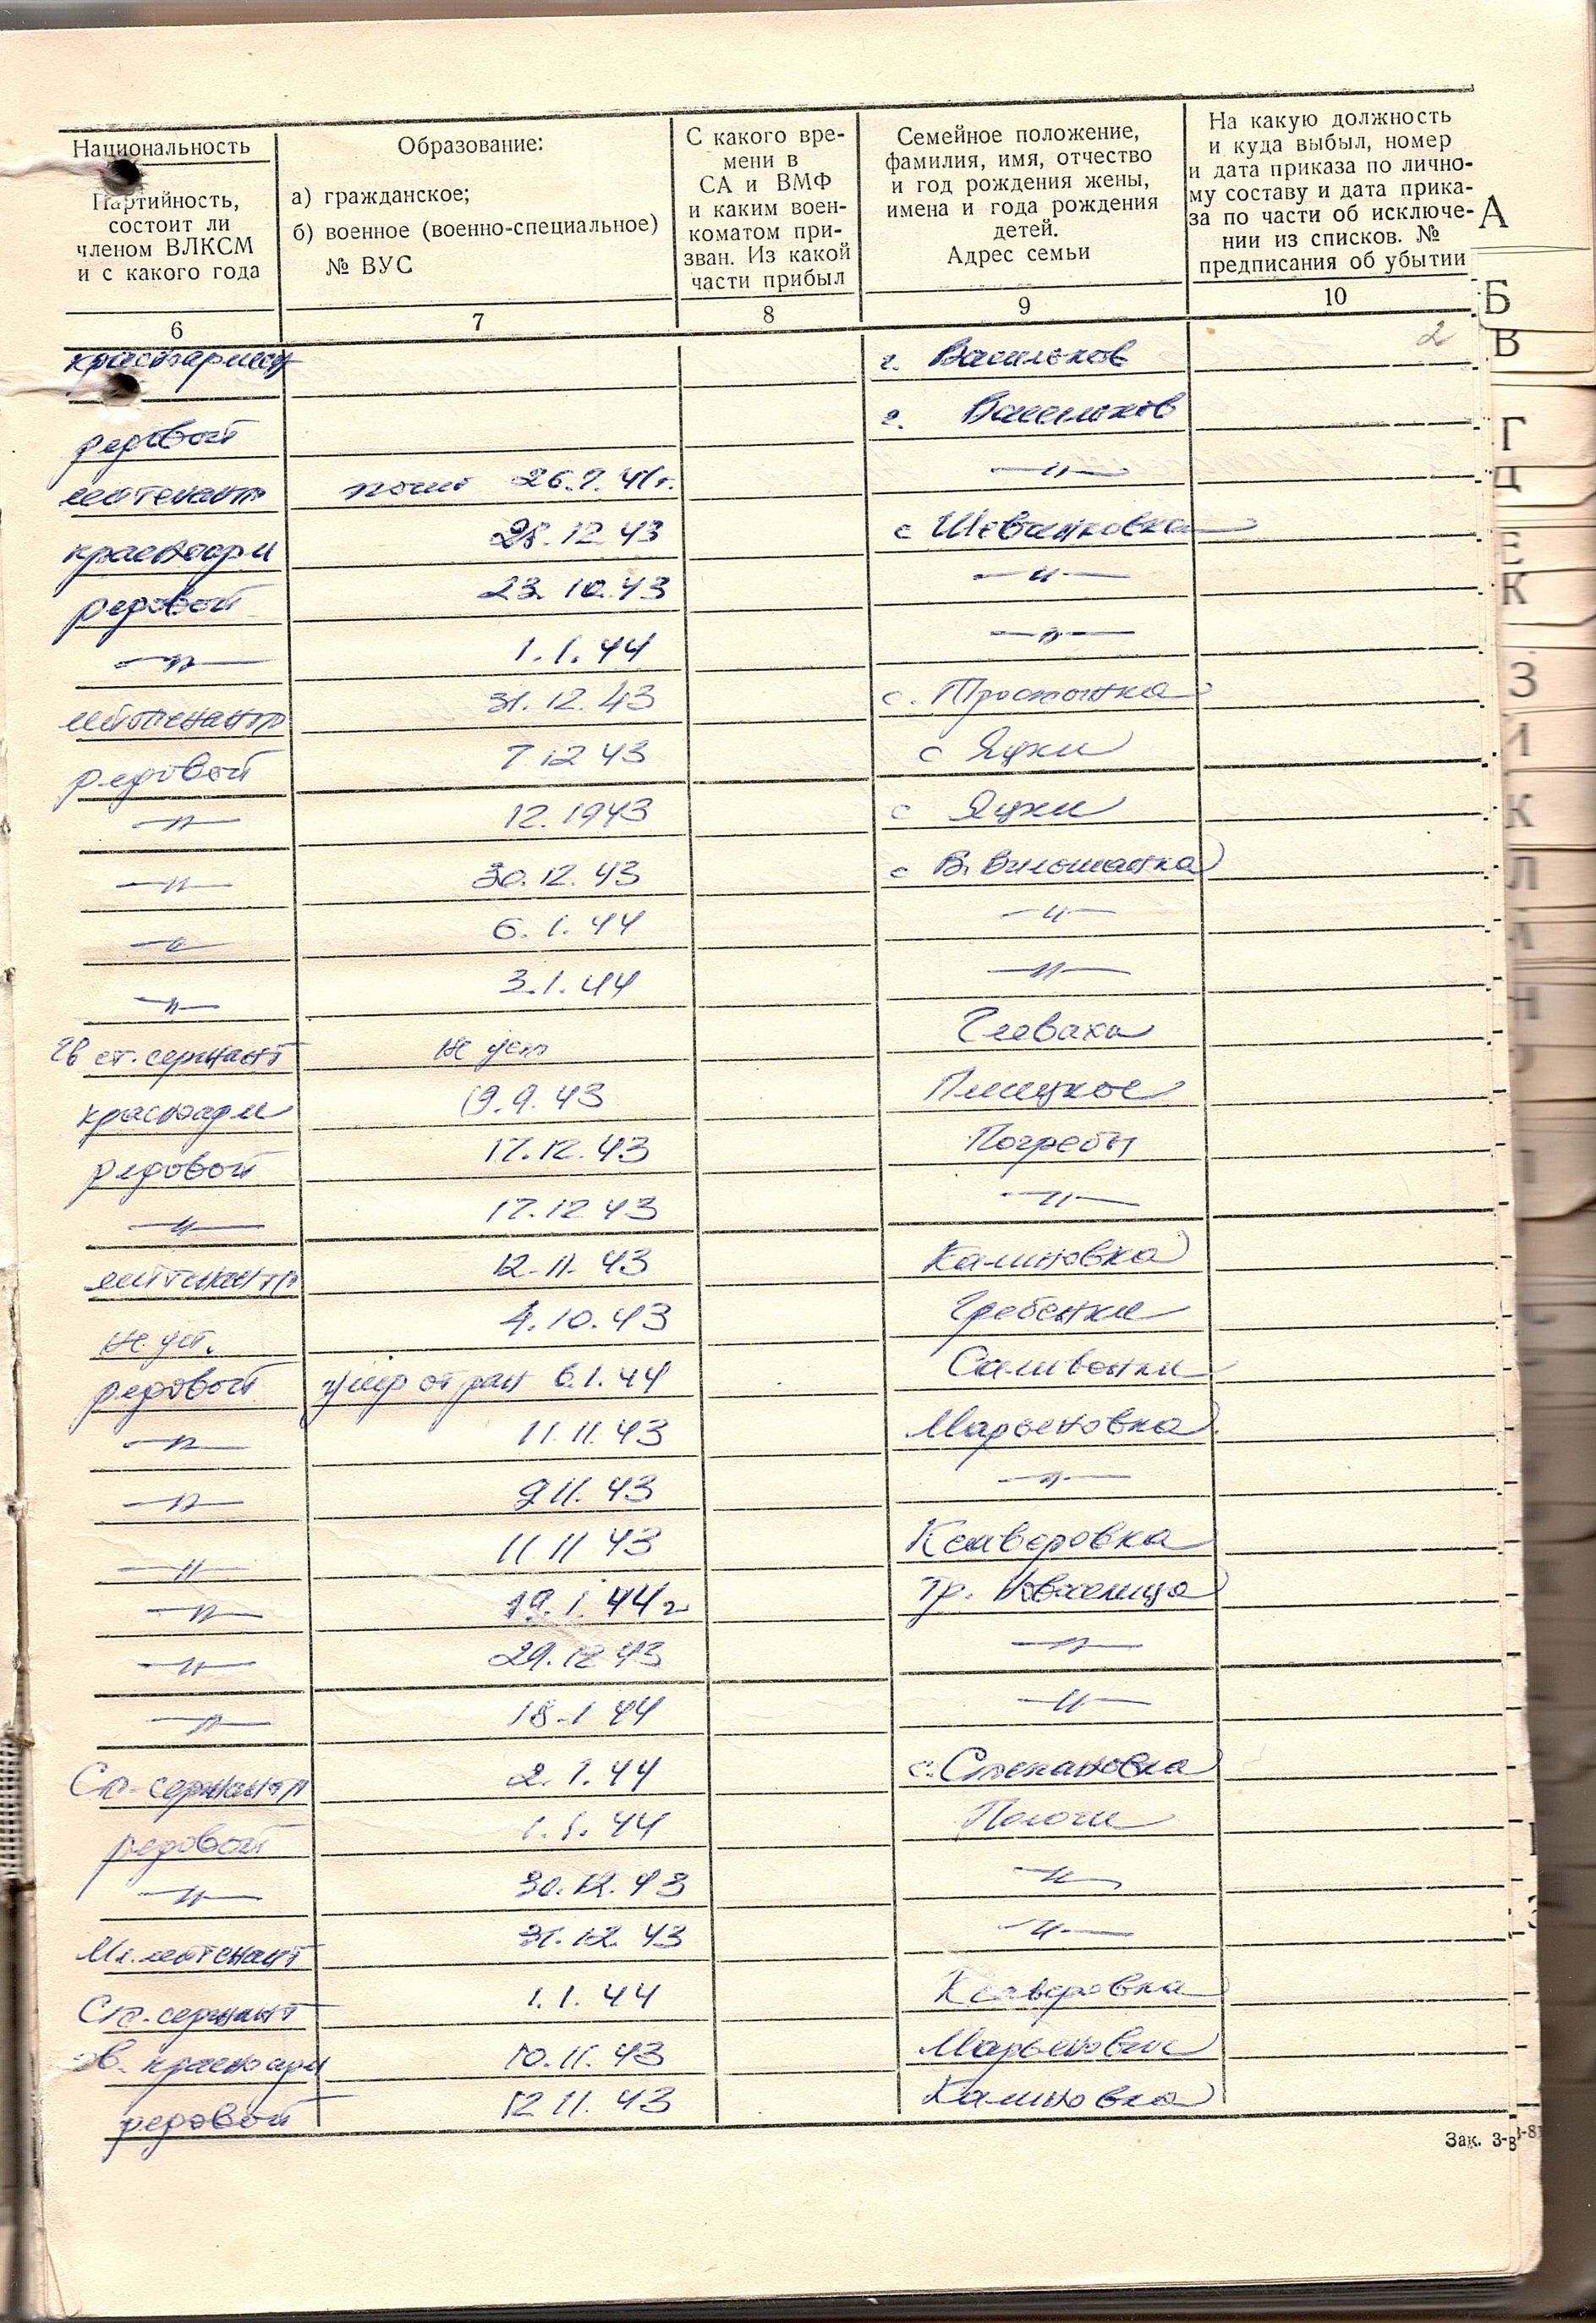 Национальность
Партийность,
состоит ли
членом ВЛКСМ
и с какого года
Образование:
а) гражданское;
б) военное (военно-специальное)
№ ВУС
С какого вре-
мени в
СА и ВМФ
и каким воен-
коматом при-
зван. Из какой
части прибыл
Семейное положение,
фамилия, имя, отчество
и год рождения жены,
имена и года рождения
детей.
Адрес семьи
На какую должность
и куда выбыл, номер
и дата приказа по лично-
му составу и дата прика-
за по части об исключе-
нии из списков. №
предписания об убытии
6 7 8 9 10
2
г. Васильков
рядовой г. Васильков
лейтенант 26.7.41г. —"—
красноарм 28.12.43 с Шевченковка
рядовой 23.10.43 —"—
—"— 1.1.44 —"—
лейтенант 31.12.43 с.
рядовой 7 12 43 с Яцки
—"— 12.1943 с Яцки
—"— 30.12.43 с В.
—"— 6.1.44 —"—
—"— 3.1.44 —"—
Гв ст. сержант не уст Глеваха
красноарм 19.9.43 Плесецкое
рядовой 17.12.43 Погребы
—"— 17.12 43 —"—
лейтенант 12.11.43 Калиновка
не уст. 4.10.43 Гребенки
рядовой умер от ран 6.1.44 Саливонки
—"— 11.11.43 Марьяновка
—"— 9 11.43 —"—
—"— 11 11 43 Ксаверовка
—"— 19.1.44г Гр. Новоселица
—"— 29.12 43 —"—
—"— 18.1 44 —"—
Ст. сержант 2.1.44 с. Степановка
рядовой 1.1.44 Пологи
—"— 30.12.43 —"—
Мл. лейтенант 31.12.43 —"—
Ст. сержант 1.1.44 Ксаверовка
красноарм 10.11.43 Марьяновка
рядовой 12 11.43 Калиновка
А
Б
В
Г
Д
Е
К
З
И
К
Л
Н
Зак. 3-8